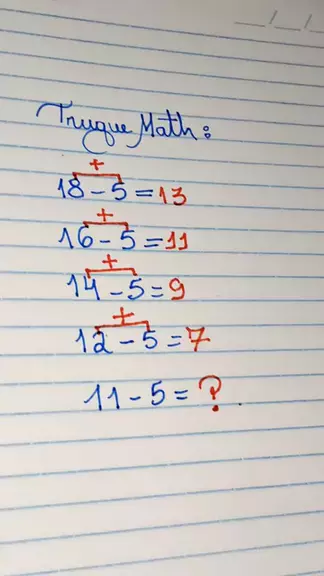 Truque Math:
+
18 - 5 = 13
+
16 - 5 = 11
+
14 - 5 = 9
+
12 - 5 = 7
11 - 5 = ?